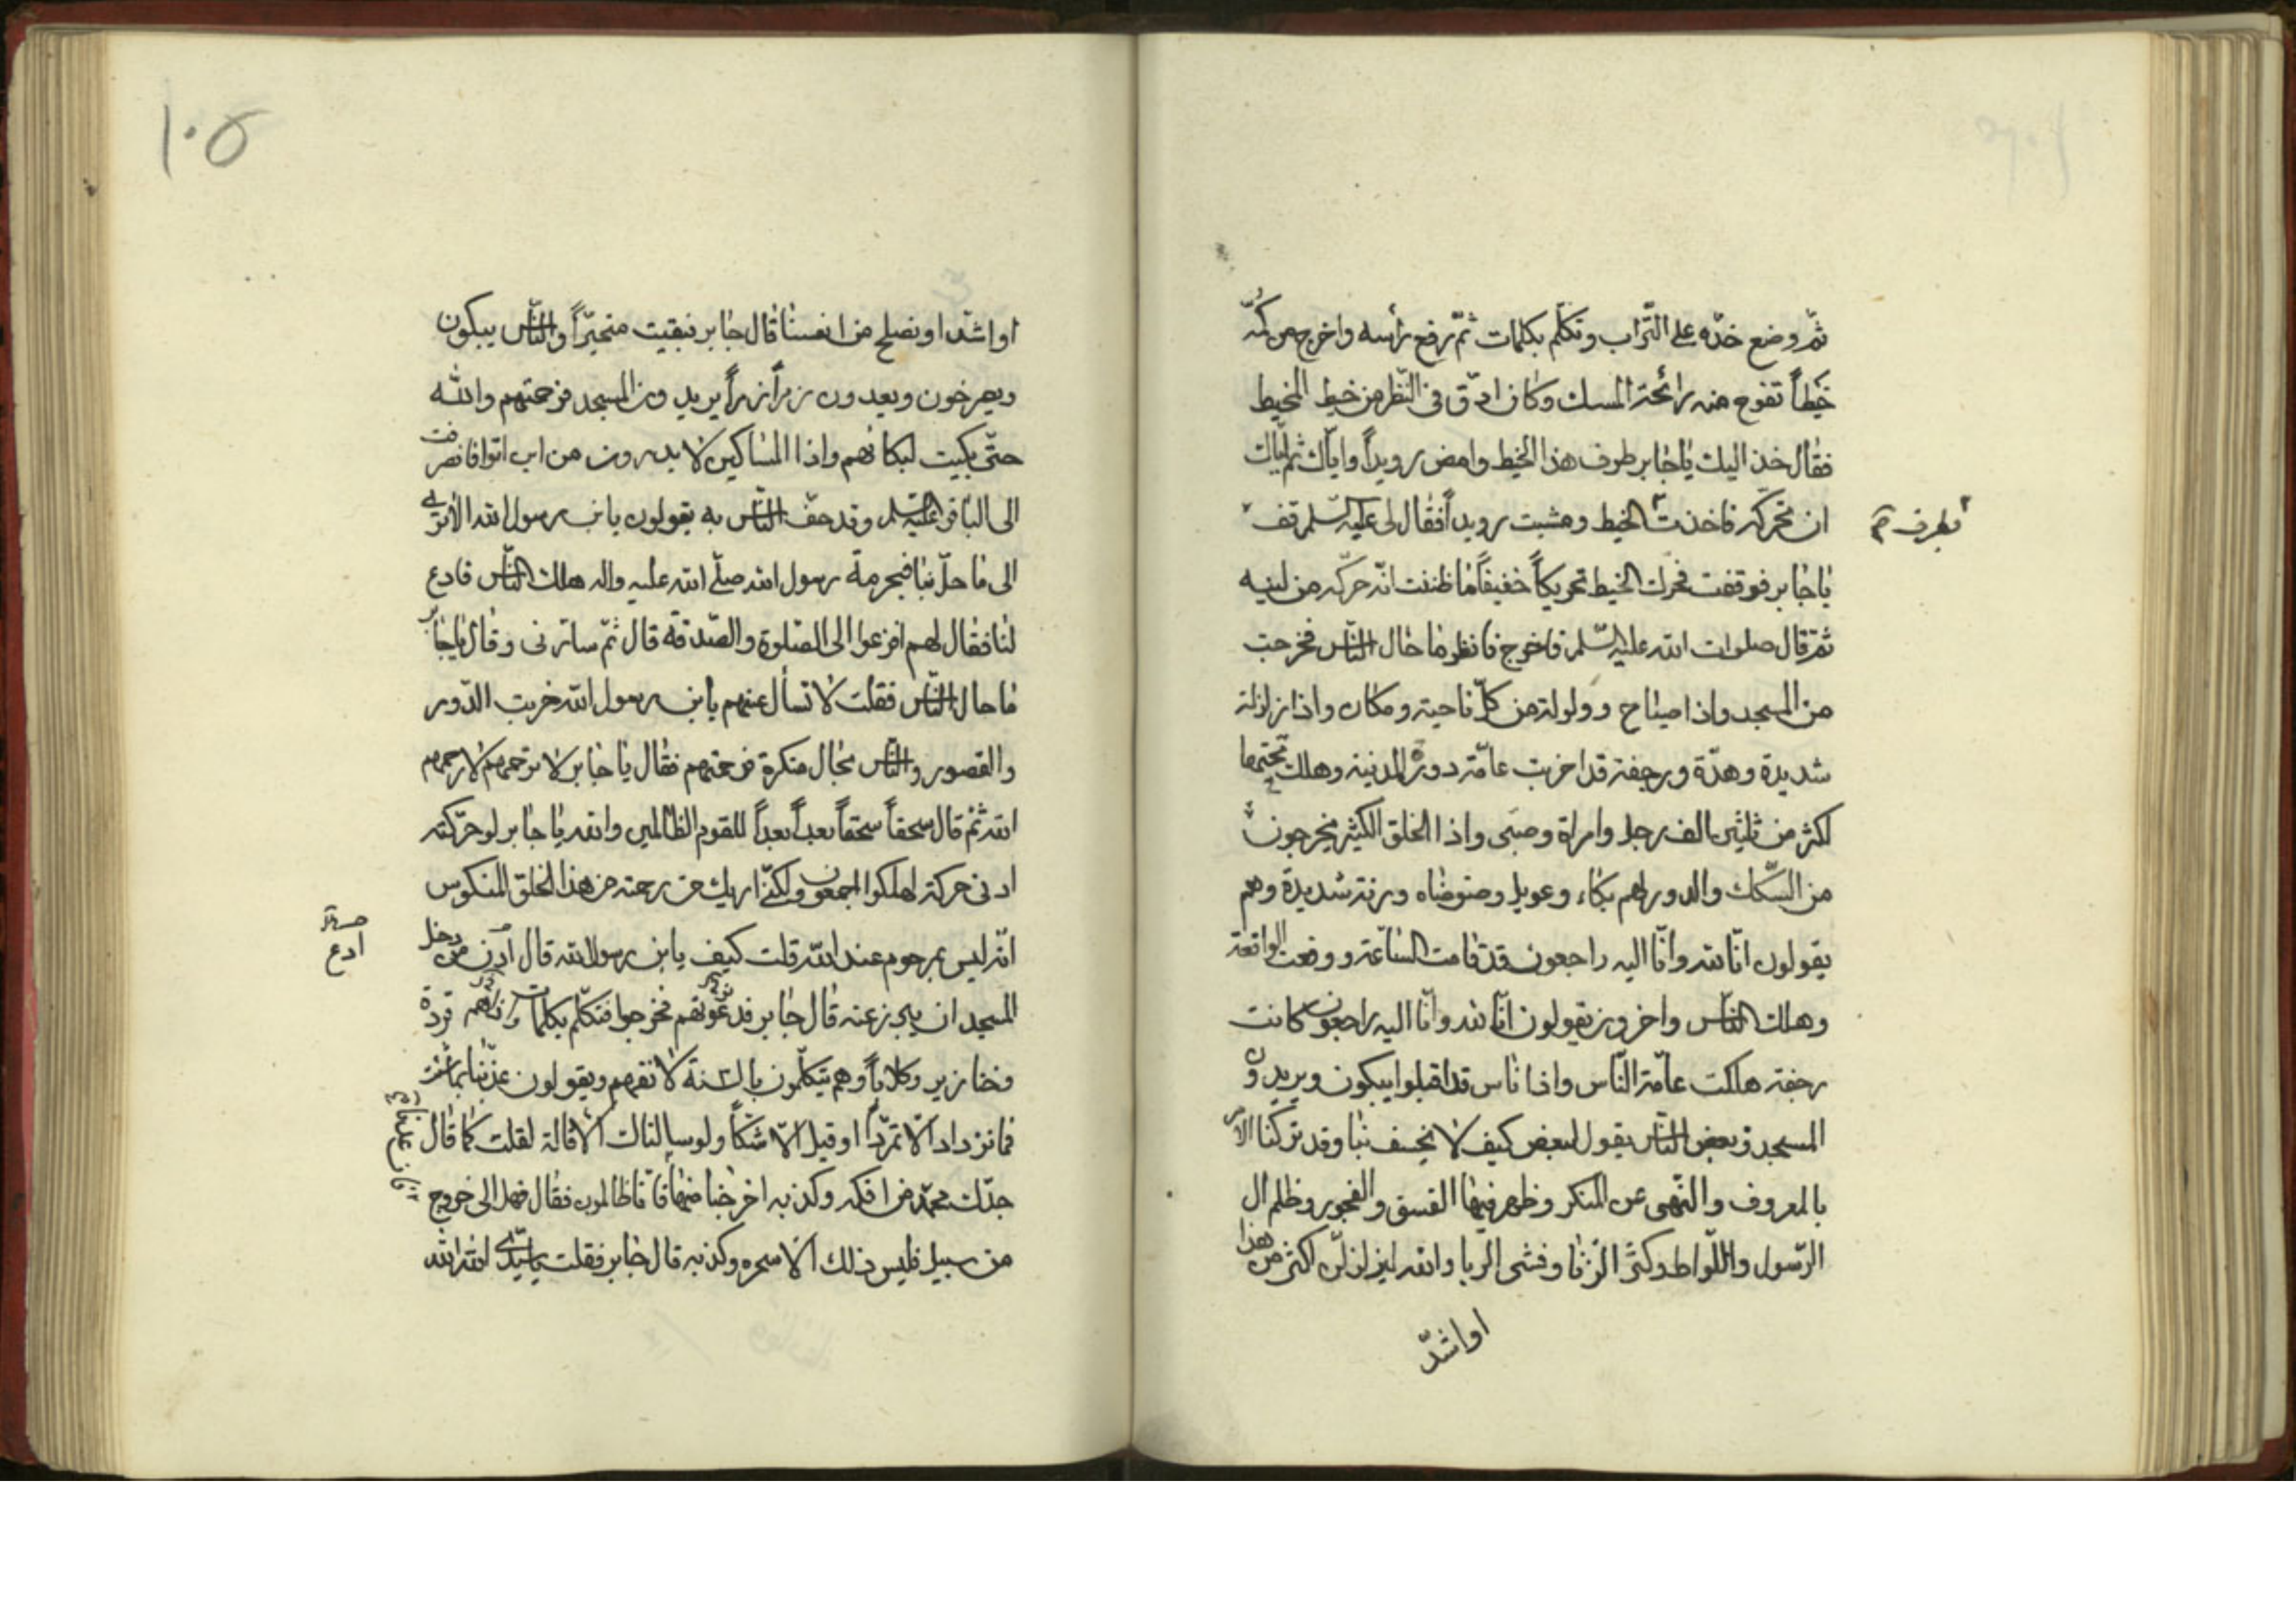 ثمّ وضع خدّه على التّراب وتكلّم بكلمات ثمّ رفع رأسه واخرج من كمّه
خيطاً تفوح منه رائحة المسك وكان ادقّ فى النّظر من خيط المخيط
فقال خذ اليك يا جابر طرف هذا الخيط وامض رويداً وايّاك ثم ايّاك
ان تحركه فاخذت الخيط ومشيت رويداً فقال لى عليه السّلم قف
بطرف
يا جابر فوقفت فحرك الخيط تحريكاً خفيفاً ما ظننت انّه حرّكه من لينه
ثم قال صلوات الله عليه السّلم فاخرج فانظر ما حال النّاس فخرجت
من المسجد واذا صياح وولولة من كلّ ناحية ومكان واذا زلزلة
شديدة وهدّة ورجفة قد اخربت عامّة دور المدينة وهلك تحتها
اكثر من ثلثين الف رجل وامراة وصبى واذا الخلق الكثير يخرجون
من السّكك والدور لهم بكاء وعويل وضوضاه ورنة شديدة وهم
يقولون انّا لله وانّا اليه راجعون قد قامت السّاعة ووقعت الواقعة
وهلك النّاس واخرون يقولون انّا لله وانّا اليه راجعون كانت
رجفة هلكت عامّة النّاس واذا ناس قد اقبلوا يبكون ويريدون
المسجد وبعض النّاس يقول لبعض كيف لا يخسف بنا وقد تركنا الامر
بالمعروف والنّهى عن المنكر وظهر فينا الفسق والفجور وظلم ال
الرّسول واللّواط وكثر الزّنا وفشى الرّبا والله ليزلزلنّ اكثر من هذا
او اشدّ
١٠٥
او اشدّ او نصلح من انفسنا قال جابر فبقيت متحيّراً والنّاس يبكون
ويصرخون ويعدون زمراً زمراً يريدون المسجد فرحمتهم والله
حتّى بكيت لبكائهم واذا المساكين لا يدرون من اين اتوا فانصرفت
الى الباقر عليه السّلم وقد حفّ النّاس به يقولون يابن رسول الله الا ترى
الى ما حلّ بنا فبحرمة رسول الله صلّى الله عليه واله هلك النّاس فادع
لنا فقال لهم افزعوا الى الصّلوة والصّدقة قال ثمّ سارّنى وقال يا جابر
ما حال النّاس فقلت لا تسأل عنهم يابن رسول الله خربت الدّور
والقصور والنّاس بحال منكرة فرحمتهم فقال يا جابر لا ترحمهم لا رحمهم
الله ثم قال سحقاً سحقاً بعداً بعداً للقوم الظّالمين والله يا جابر لو حرّكته
ادنى حركة لهلكوا اجمعون ولكنّى اريك من رحمة من هذا الخلق المنكوس
انّه ليس بمرحوم عند الله قلت كيف يابن رسول الله قال ادن من دخل
ادع
المسجد ان يبرز عنه قال جابر فدعوتهم فخرجوا فتكلّم بكلمات واذاهم قردة
وخنازير وكلاباً وهم يتكلّمون بالسنة لا نفهم ويقولون عذّبنا بما شئت
فما نزداد الّا تمرّداً او قيل الّا شكّاً ولو سالناك الاقالة لقلت كما قال
جدّك محمّد من افكه وكذبه اخرجنا منها فانّا ظالمون فقال فهل الى خروج
فان عدنا
من سبيل فليس ذلك الّا سحره وكذبه قال جابر فقلت يا سيّدى الله الله